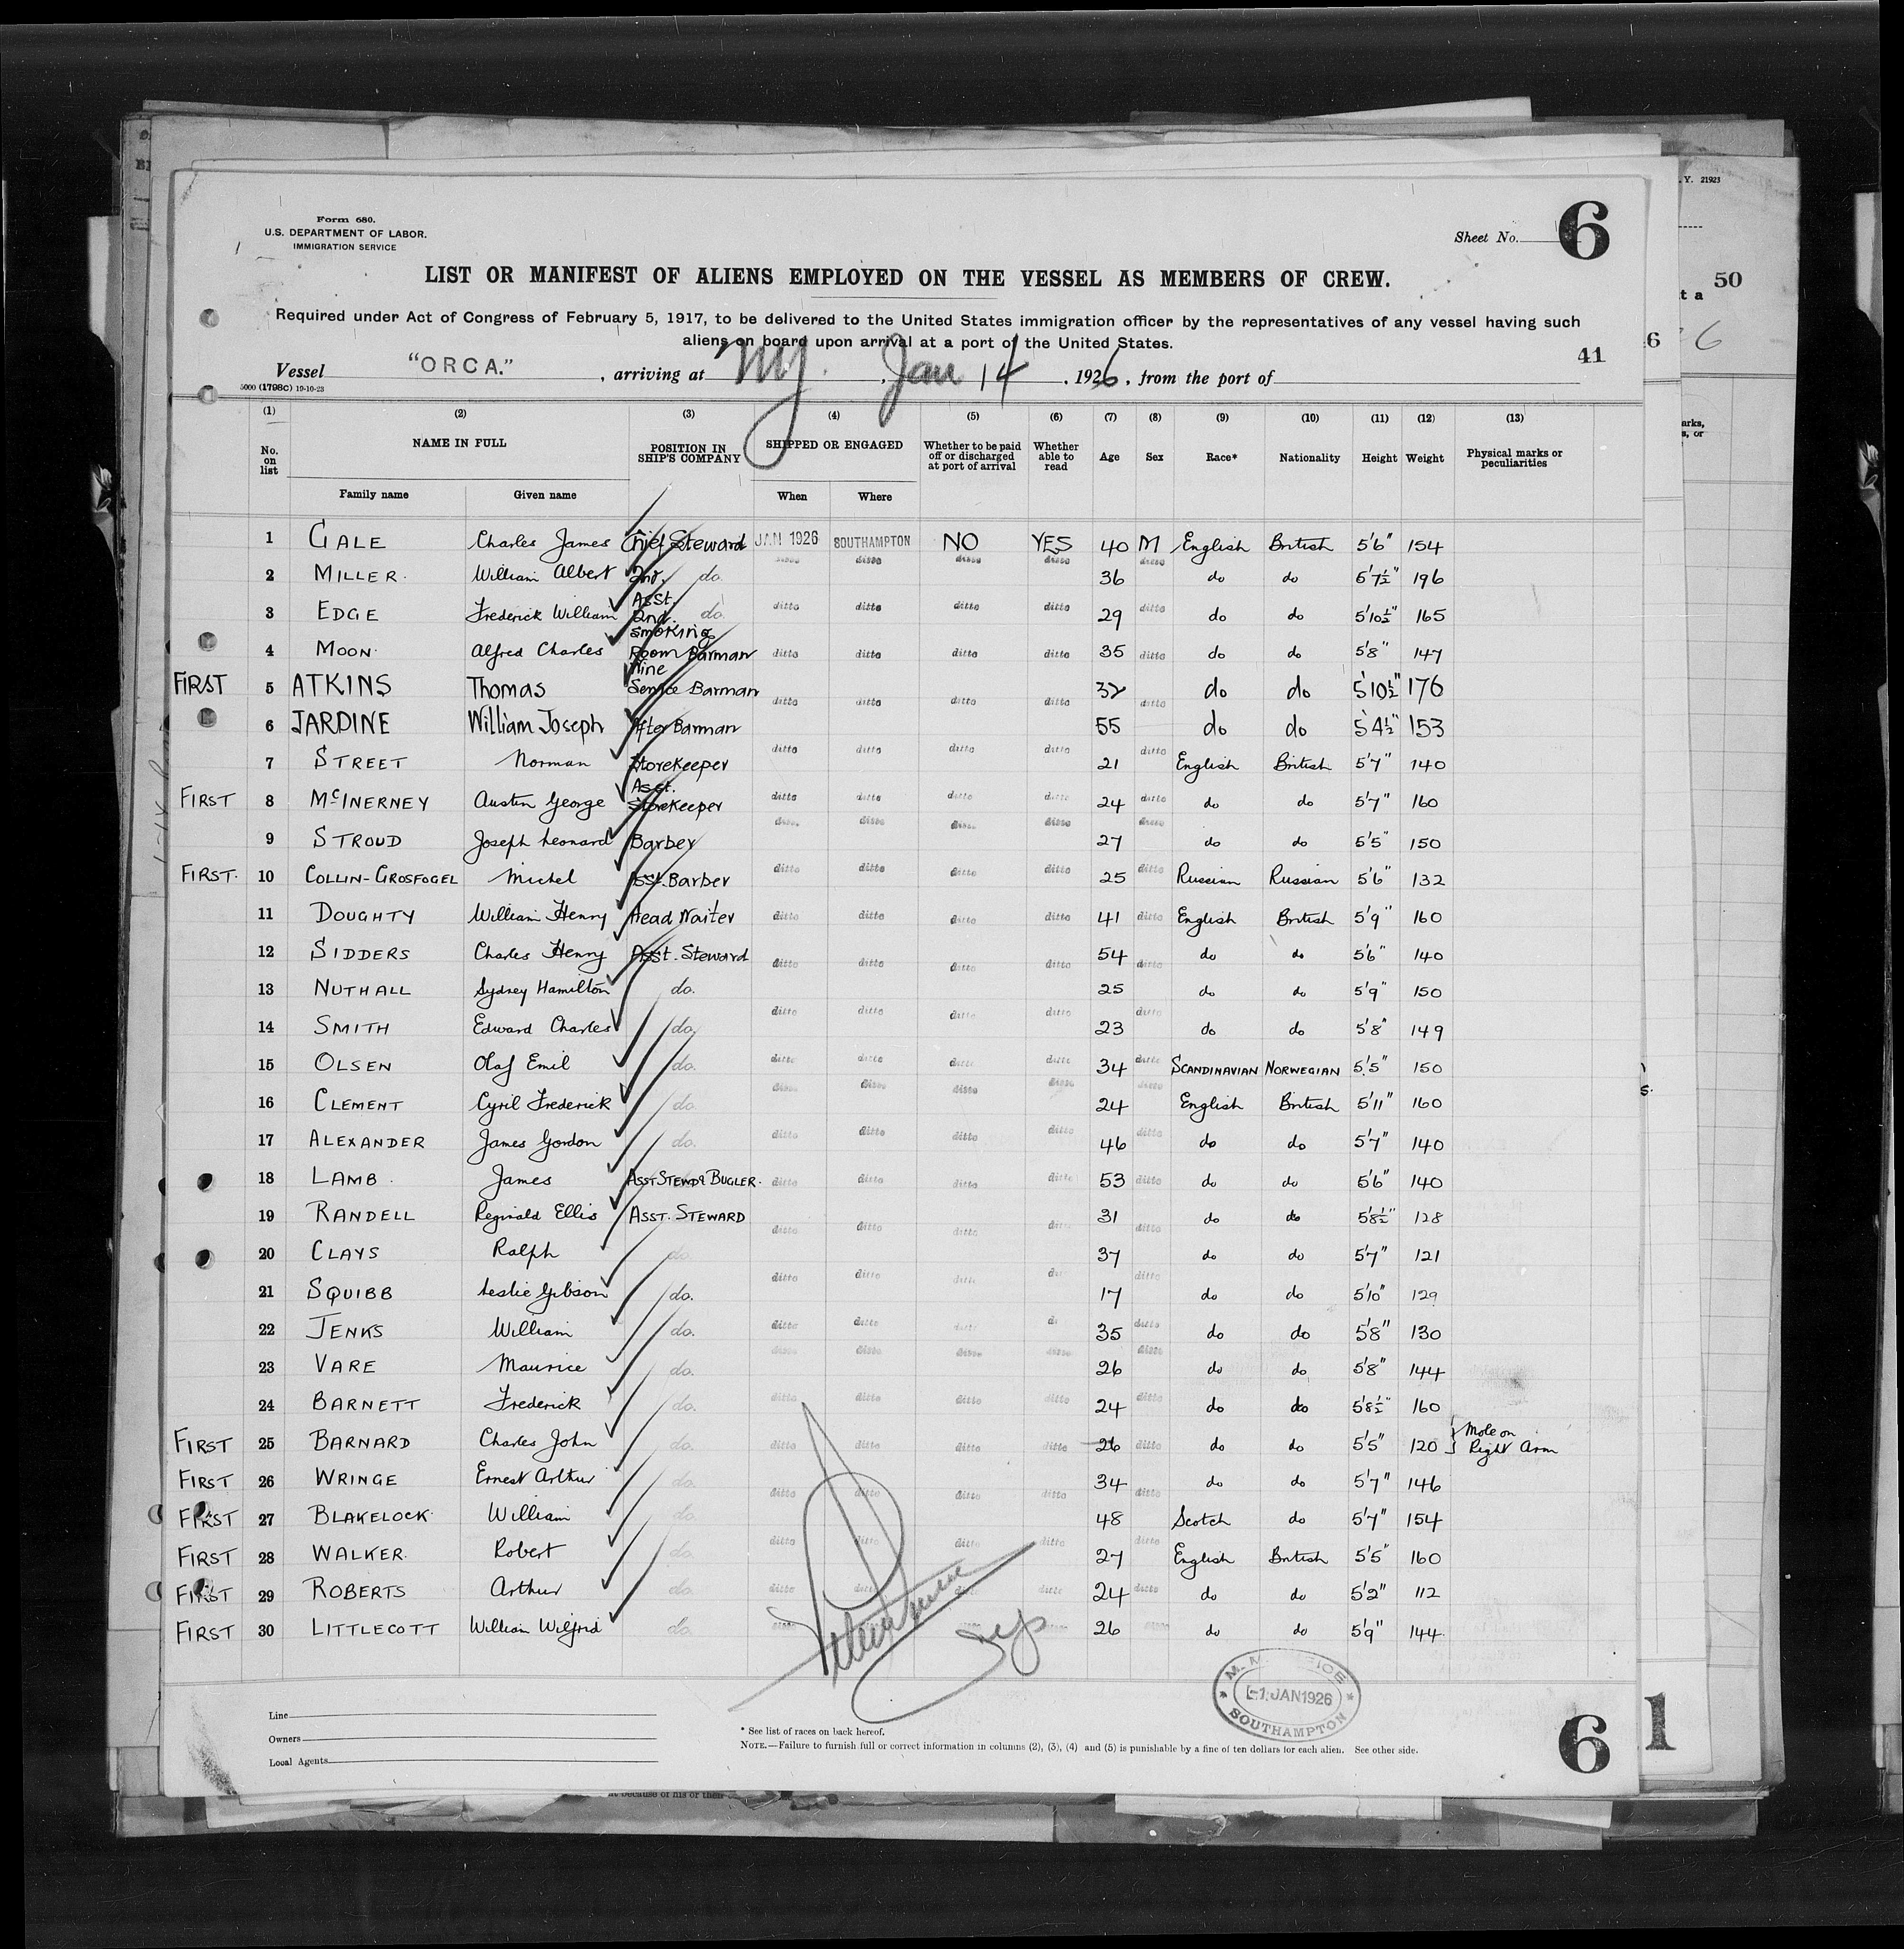 Form 680.
U.S. DEPARTMENT OF LABOR.
IMMIGRATION SERVICE
Sheet No. 6
Y. 21923
50
LIST OR MANIFEST OF ALIENS EMPLOYED ON THE VESSEL AS MEMBERS OF CREW.
t a
Required under Act of Congress of February 5, 1917, to be delivered to the United States immigration officer by the representatives of any vessel having such
aliens on board upon arrival at a port of the United States.
6
6
41
Vessel "ORCA.", arriving at NY., Jan 14, 1926, from the port of
5000 (1798C) 19-10-23
(1) (2) (3) (4) (5) (6) (7) (8) (9) (10) (11) (12) (13)
No. on list NAME IN FULL POSITION IN SHIP'S COMPANY SHIPPED OR ENGAGED Whether to be paid off or discharged at port of arrival Whether able to read Age Sex Race* Nationality Height Weight Physical marks or peculiarities
Family name Given name When Where
1 GALE Charles James Chief Steward JAN 1926 SOUTHAMPTON NO YES 40 M English British 5'6" 154
2 MILLER. William Albert 2nd. do. ditto ditto ditto ditto 36 ditto do do 5'7½" 196
3 EDGE Frederick William Asst. 2nd. do. ditto ditto ditto ditto 29 ditto do do 5'10½" 165
4 MOON Alfred Charles Smoking Room Barman ditto ditto ditto ditto 35 ditto do do 5'8" 147
FIRST 5 ATKINS Thomas Wine Service Barman ditto ditto ditto ditto 32 ditto do do 5'10½" 176
6 JARDINE William Joseph After Barman 55 do do 5'4½" 153
7 STREET Norman Storekeeper ditto ditto ditto ditto 21 ditto English British 5'7" 140
FIRST 8 McINERNEY Austin George Asst. Storekeeper ditto ditto ditto ditto 24 ditto do do 5'7" 160
9 STROUD Joseph Leonard Barber ditto ditto ditto ditto 27 ditto do do 5'5" 150
FIRST. 10 COLLIN-GROSFOGEL Michel Asst. Barber ditto ditto ditto ditto 25 ditto Russian Russian 5'6" 132
11 DOUGHTY William Henry Head Waiter ditto ditto ditto ditto 41 ditto English British 5'9" 160
12 SIDDERS Charles Henry Asst. Steward ditto ditto ditto ditto 54 ditto do do 5'6" 140
13 NUTHALL Sydney Hamilton do. 25 do do 5'9" 150
14 SMITH Edward Charles do. ditto ditto ditto ditto 23 ditto do do 5'8" 149
15 OLSEN Olaf Emil do. ditto ditto ditto ditto 34 ditto SCANDINAVIAN NORWEGIAN 5'5" 150
16 CLEMENT Cyril Frederick do. ditto ditto ditto ditto 24 ditto English British 5'11" 160
17 ALEXANDER James Gordon do. ditto ditto ditto ditto 46 ditto do do 5'7" 140
18 LAMB. James ASST STEWD & BUGLER. ditto ditto ditto ditto 53 ditto do do 5'6" 140
19 RANDELL Reginald Ellis ASST. STEWARD ditto ditto ditto ditto 31 ditto do do 5'8½" 128
20 CLAYS Ralph do. 37 do do 5'7" 121
21 SQUIBB Leslie Gibson do. ditto ditto ditto ditto 17 ditto do do 5'10" 129
22 JENKS William do. ditto ditto ditto ditto 35 ditto do do 5'8" 130
23 VARE Maurice do. ditto ditto ditto ditto 26 ditto do do 5'8" 144
24 BARNETT Frederick do. ditto ditto ditto ditto 24 ditto do do 5'8½" 160
FIRST 25 BARNARD Charles John do. ditto ditto ditto ditto 26 ditto do do 5'5" 120 Mole on Right Arm
FIRST 26 WRINGE Ernest Arthur do. ditto ditto ditto ditto 34 ditto do do 5'7" 146
FIRST 27 BLAKELOCK William do. 48 Scotch do 5'7" 154
FIRST 28 WALKER. Robert do. ditto ditto ditto ditto 27 ditto English British 5'5" 160
FIRST 29 ROBERTS Arthur do. ditto ditto ditto ditto 24 ditto do do 5'2" 112
FIRST 30 LITTLECOTT William Wilfrid do. 26 do do 5'9" 144
-1 JAN 1926
SOUTHAMPTON
Line
Owners
Local Agents
* See list of races on back hereof.
NOTE.—Failure to furnish full or correct information in columns (2), (3), (4) and (5) is punishable by a fine of ten dollars for each alien. See other side.
6
1